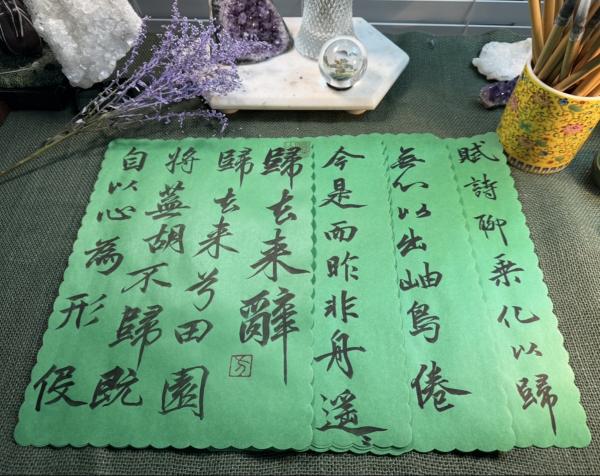 歸去来辭
歸去来兮田園
將蕪胡不歸既
自以心為形役
今是而昨非舟遥〻
無心以出岫鳥倦
賦詩聊乘化以歸